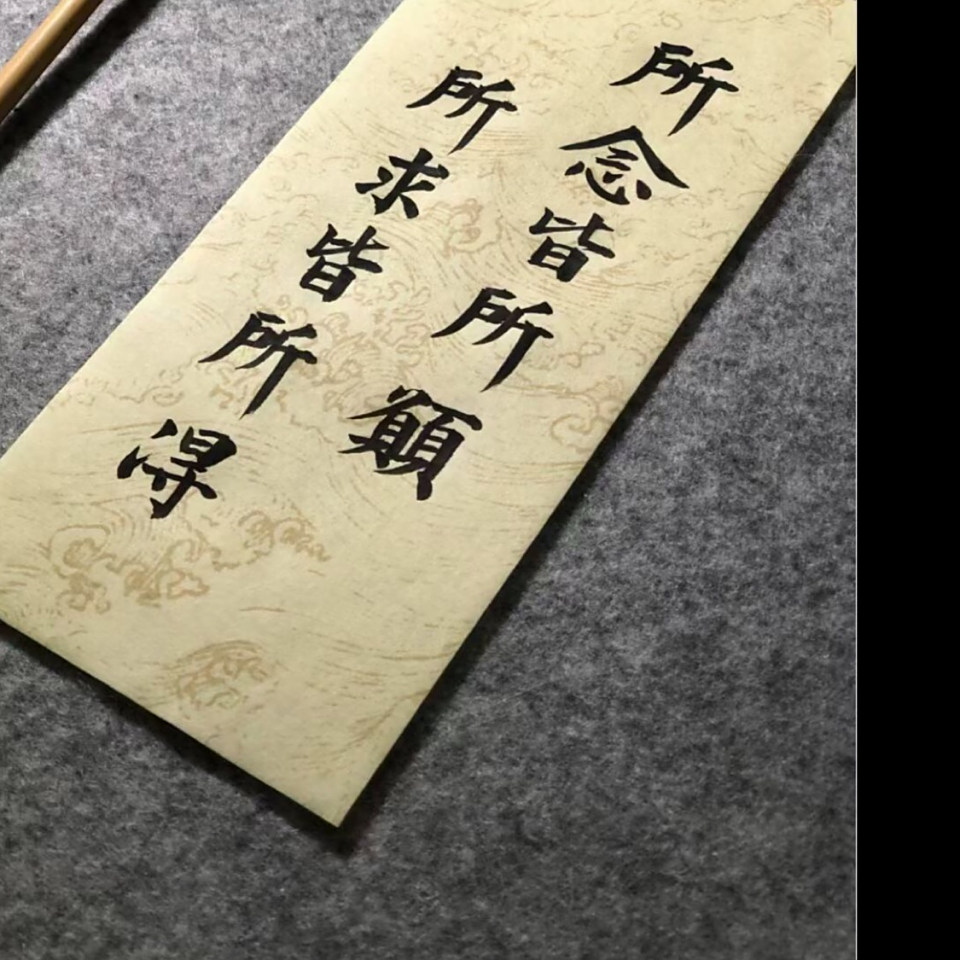 所念皆所願
所求皆所得